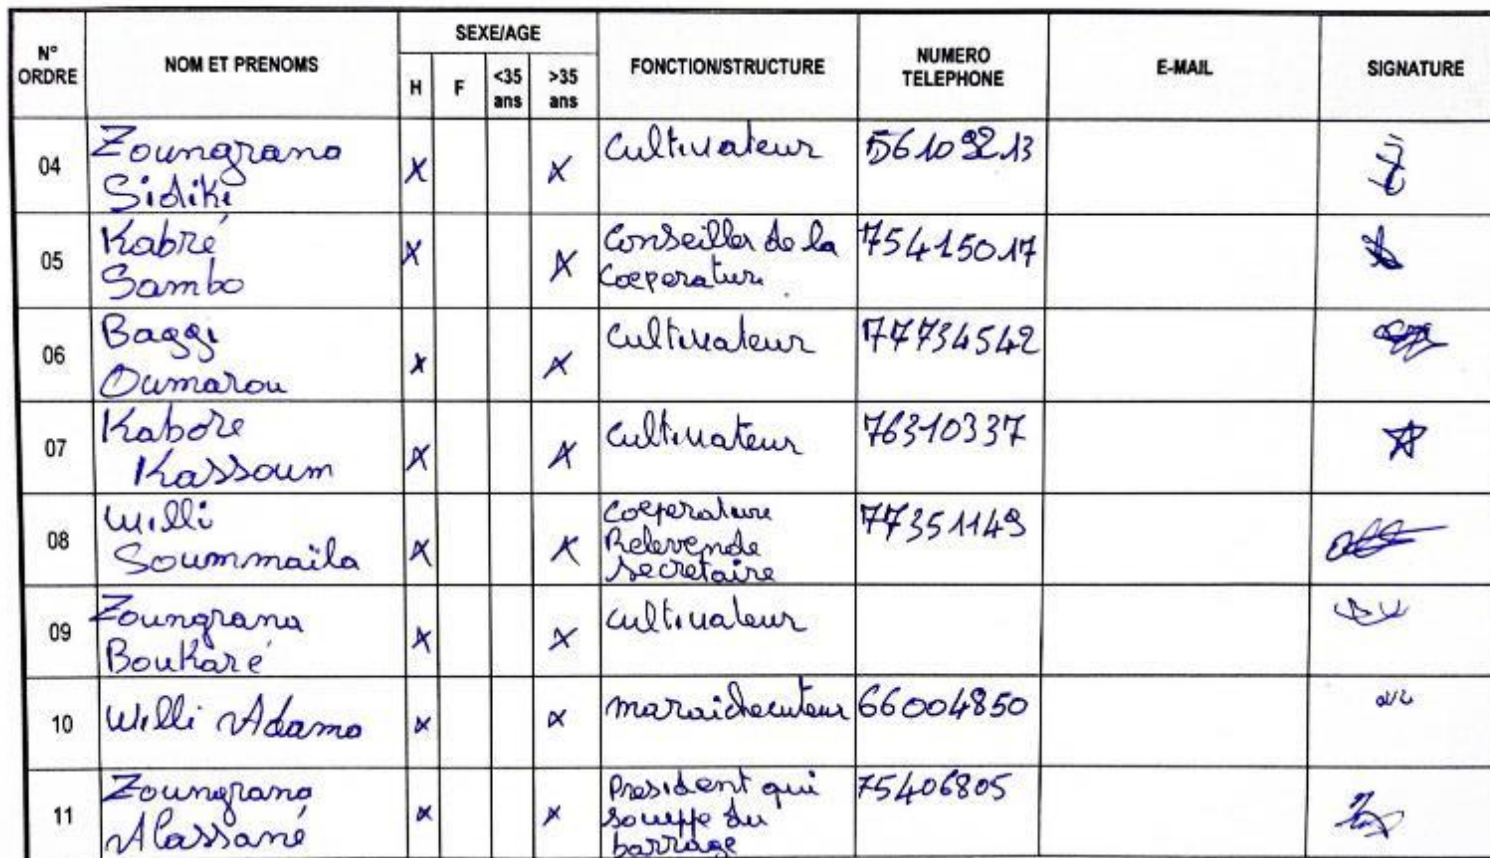 N° ORDRE NOM ET PRENOMS SEXE/AGE FONCTION/STRUCTURE NUMERO TELEPHONE E-MAIL SIGNATURE
H F <35 ans >35 ans
04 Zoungrana Sidiki X X Cultivateur 56109213
05 Kabré Sambo X X Conseiller de la Coeperature 75415017
06 Baggi Oumarou X X Cultivateur 77734542
07 Kabore Kassoum X X Cultivateur 76310337
08 Willi Soummaïla X X Coeperature secretaire 77351149
09 Zoungrana Boukaré X X Cultivateur
10 Willi Adama X X 66004850
11 Zoungrana Alassané X X President qui du barrage 75406805